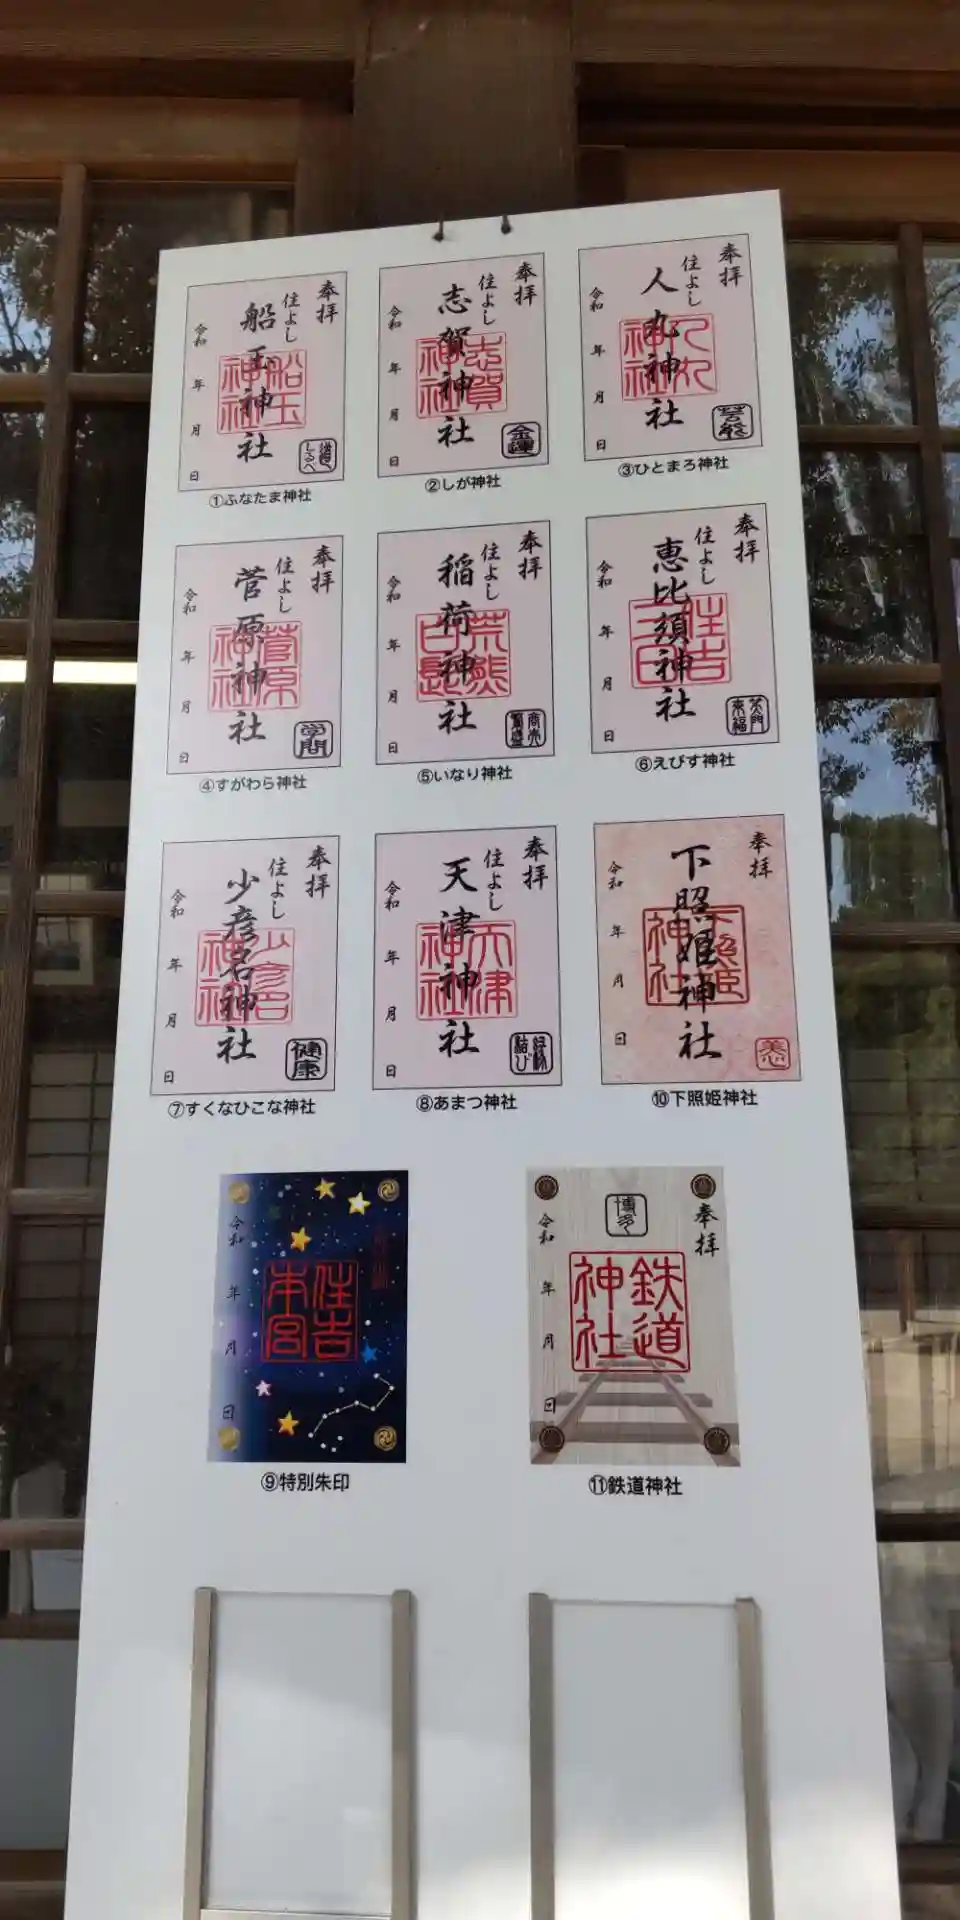 奉拝
住よし
船玉神社
船玉神社
令和 年 月 日
道しるべ
①ふなたま神社
奉拝
住よし
志賀神社
志賀神社
令和 年 月 日
金運
②しが神社
奉拝
住よし
人丸神社
人丸神社
令和 年 月 日
③ひとまろ神社
奉拝
住よし
菅原神社
菅原神社
令和 年 月 日
学問
④すがわら神社
奉拝
住よし
稲荷神社
荒熊
令和 年 月 日
商売繁盛
⑤いなり神社
奉拝
住よし
恵比須神社
住吉三日
令和 年 月 日
笑門来福
⑥えびす神社
奉拝
住よし
少彦名神社
少彦名神社
令和 年 月 日
健康
⑦すくなひこな神社
奉拝
住よし
天津神社
天津神社
令和 年 月 日
縁結び
⑧あまつ神社
奉拝
下照姫神社
下照姫神社
令和 年 月 日
美
⑩下照姫神社
住吉本宮
令和 年 月 日
⑨特別朱印
奉拝
博多
鉄道神社
令和 年 月 日
⑪鉄道神社